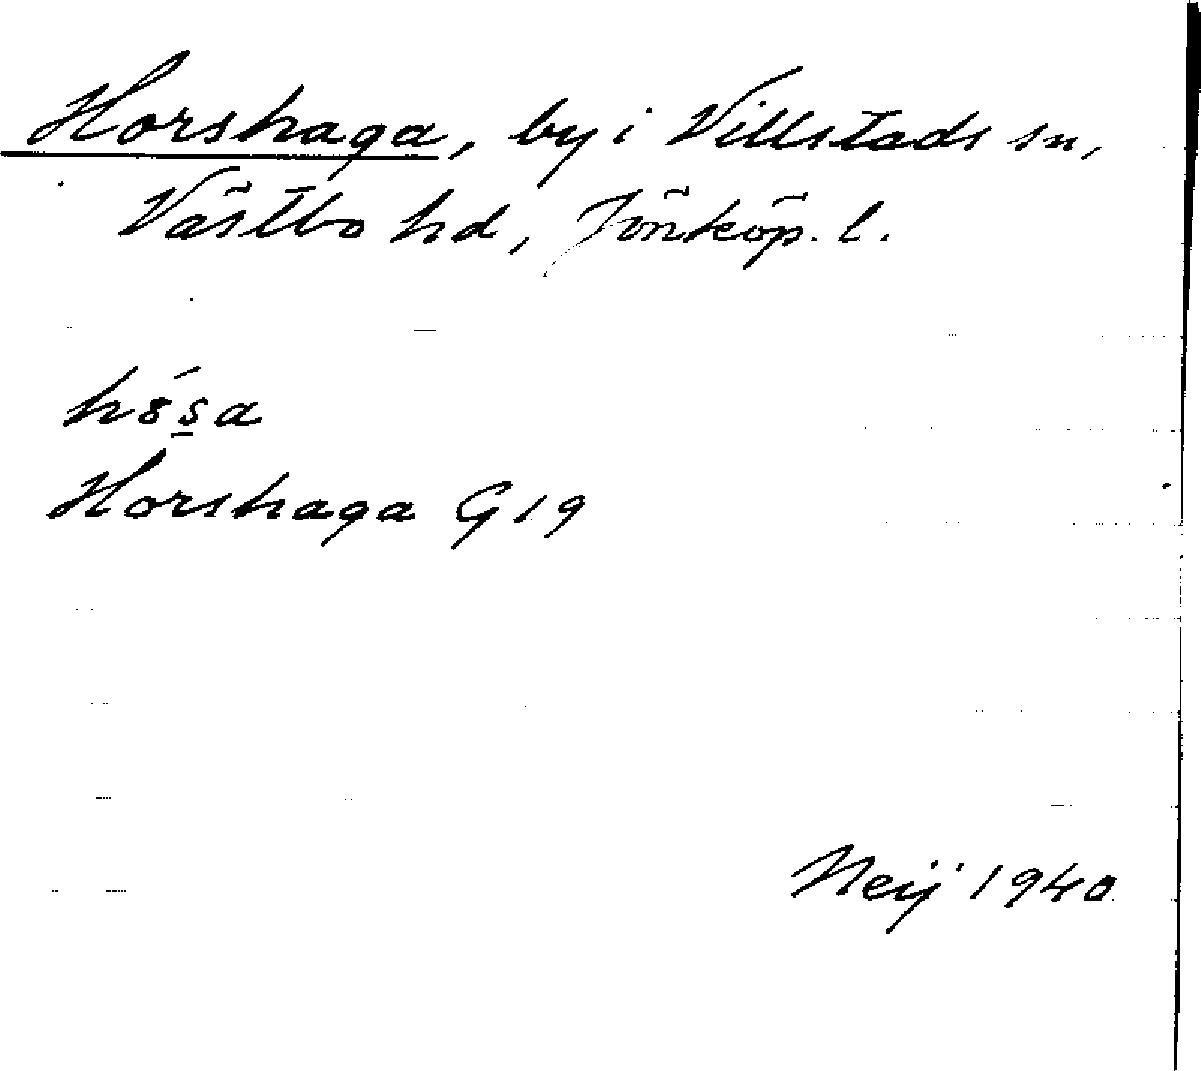 Horshaga, by i Villstads sn,
Västbo hd, Jönköp. l.
hó̤s̱a
Horshaga G19
Neij 1940